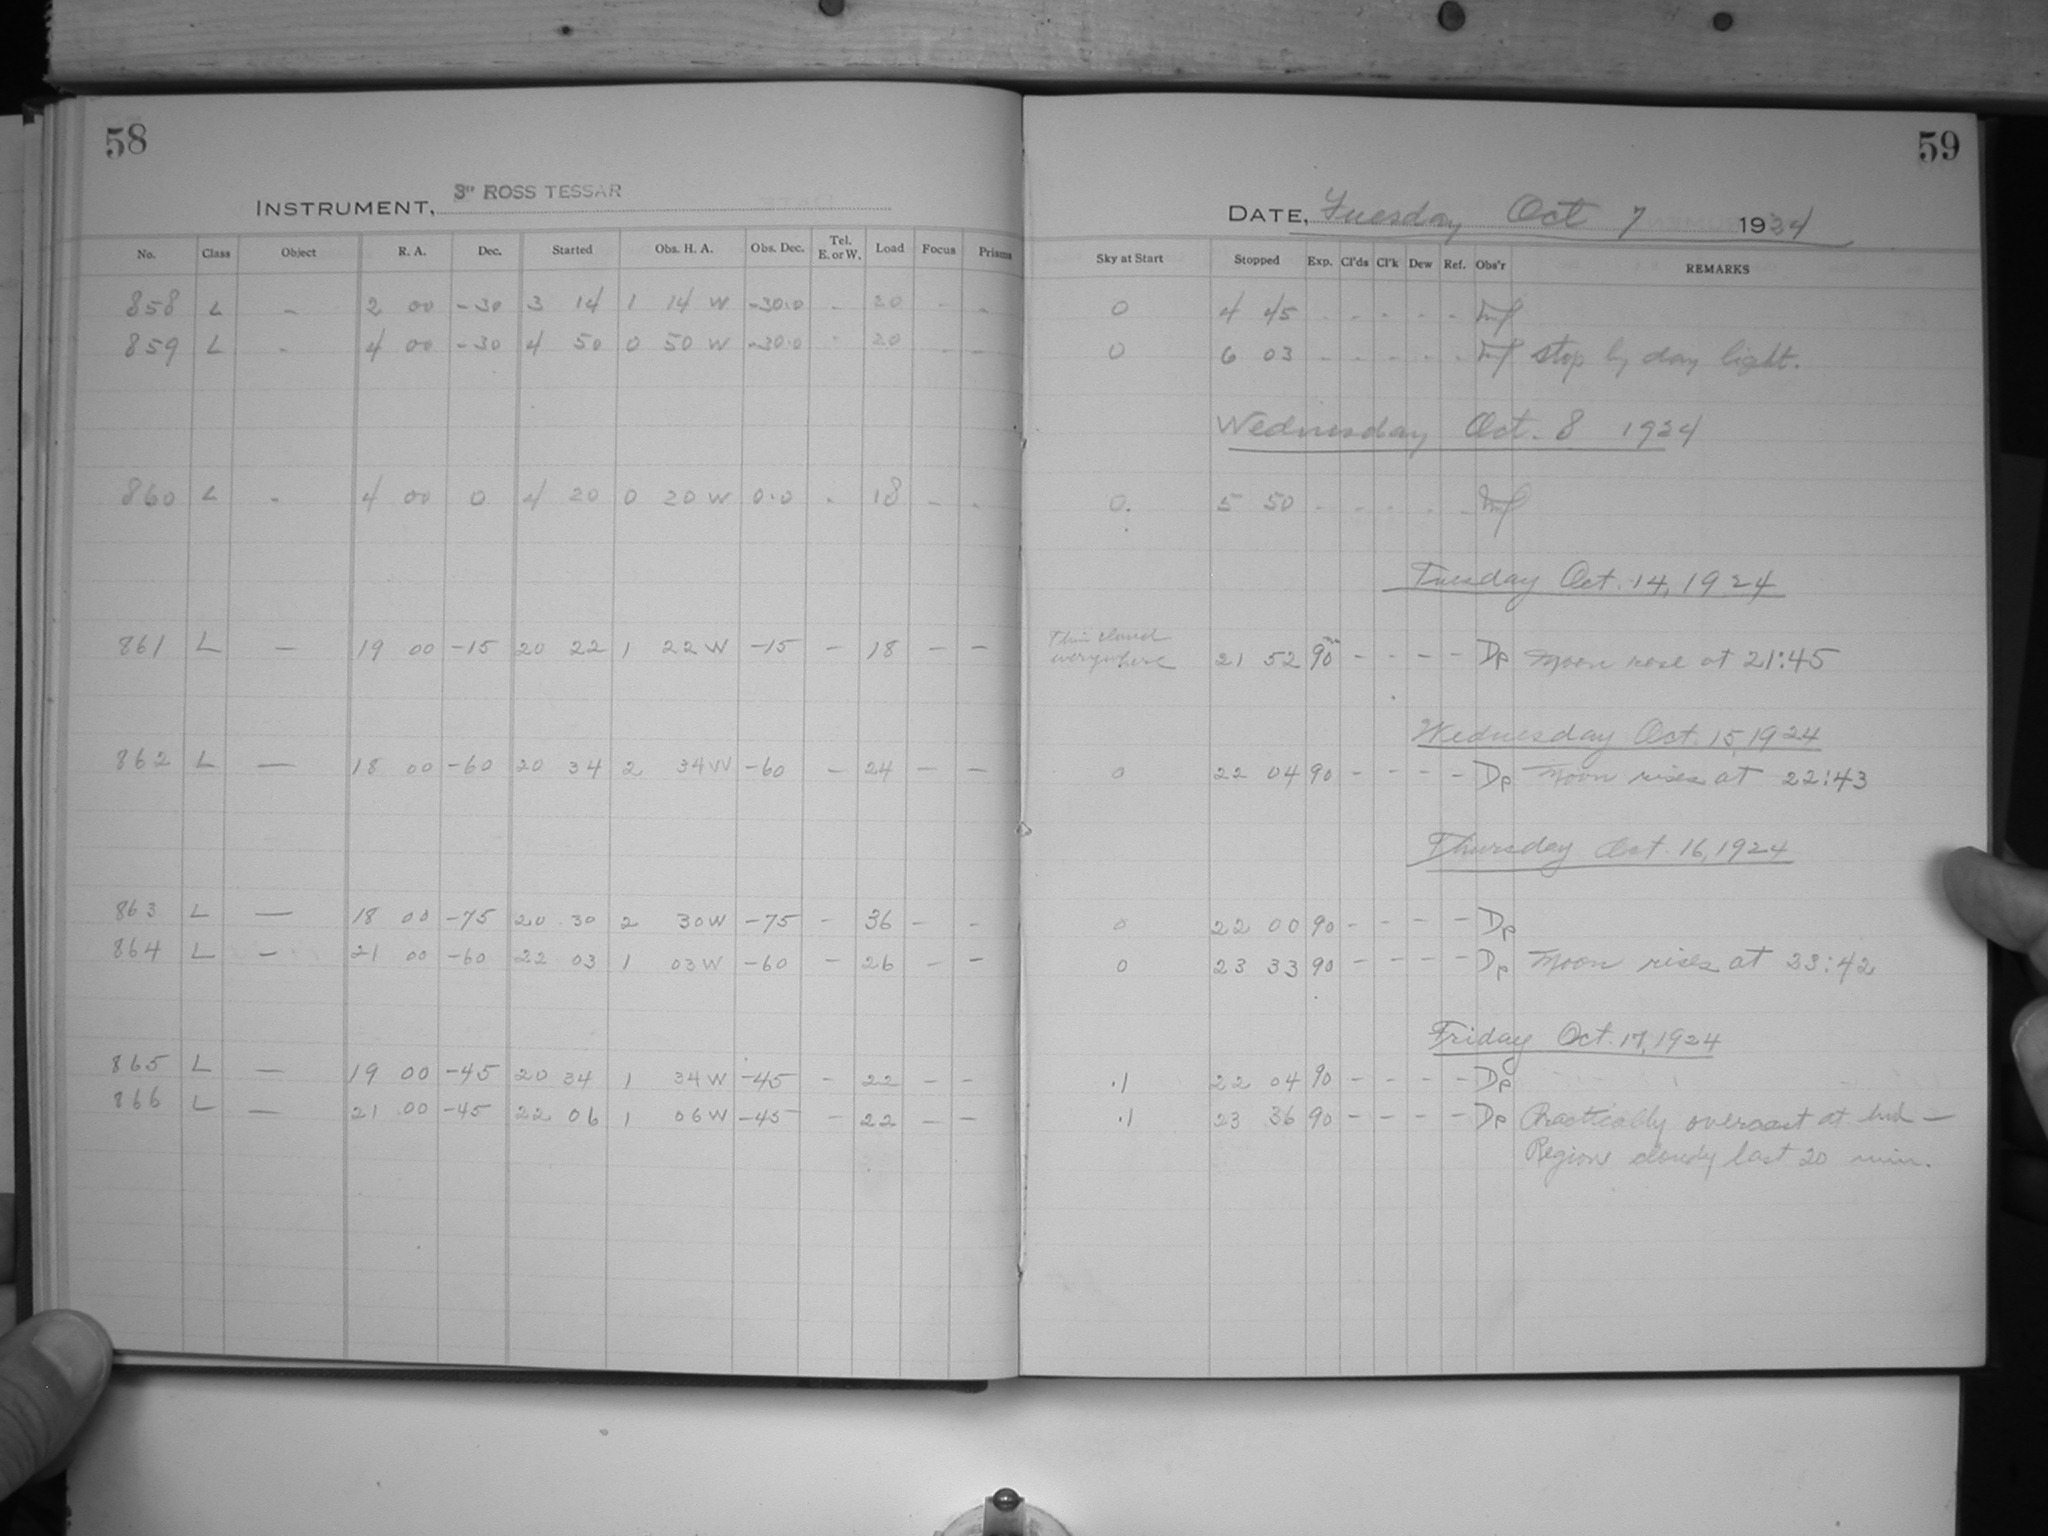 58
INSTRUMENT, 3" ROSS TESSAR
No. Class Object R. A. Dec. Started Obs. H. A. Obs. Dec. Tel. E. or W. Load Focus Prisms
858 L - 2 00 -30 3 14 1 14 W -30.0 - 20 - -
859 L - 4 00 -30 4 50 0 50 W -30.0 - 20 - -
860 L - 4 00 0 4 20 0 20 W 0.0 - 18 - -
861 L — 19 00 -15 20 22 1 22 W -15 - 18 - -
862 L — 18 00 -60 20 34 2 34 W -60 - 24 - -
863 L — 18 00 -75 20 30 2 30 W -75 - 36 - -
864 L — 21 00 -60 22 03 1 03 W -60 - 26 - -
865 L — 19 00 -45 20 34 1 34 W -45 - 22 - -
866 L — 21 00 -45 22 06 1 06 W -45 - 22 - -
59
DATE, Tuesday Oct 7 1924
Sky at Start Stopped Exp. Cl'ds Cl'k Dew Ref. Obs'r REMARKS
0 4 45 - - - - -
0 6 03 - - - - - stop by day light.
Wednesday Oct. 8 1924
0. 5 50 - - - - -
Tuesday Oct. 14, 1924
Thin cloud everywhere 21 52 90m - - - - Dp Moon rose at 21:45
Wednesday Oct. 15, 1924
0 22 04 90 - - - - Dp Moon rises at 22:43
Thursday Oct. 16, 1924
0 22 00 90 - - - - Dp
0 23 33 90 - - - - Dp Moon rises at 23:42
Friday Oct. 17, 1924
.1 22 04 90 - - - - Dp
.1 23 36 90 - - - - Dp Practically overcast at end —
Region cloudy last 20 min.